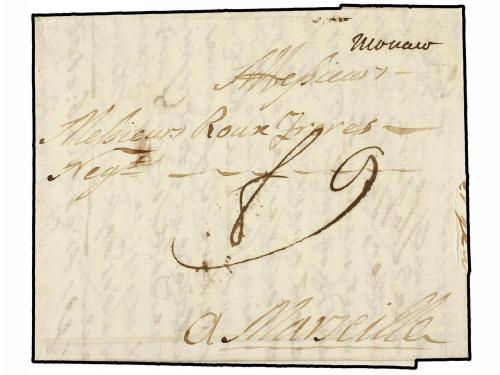 Monaco
A Messieurs
Messieurs Roux Freres
Negts
8 9
a Marseille